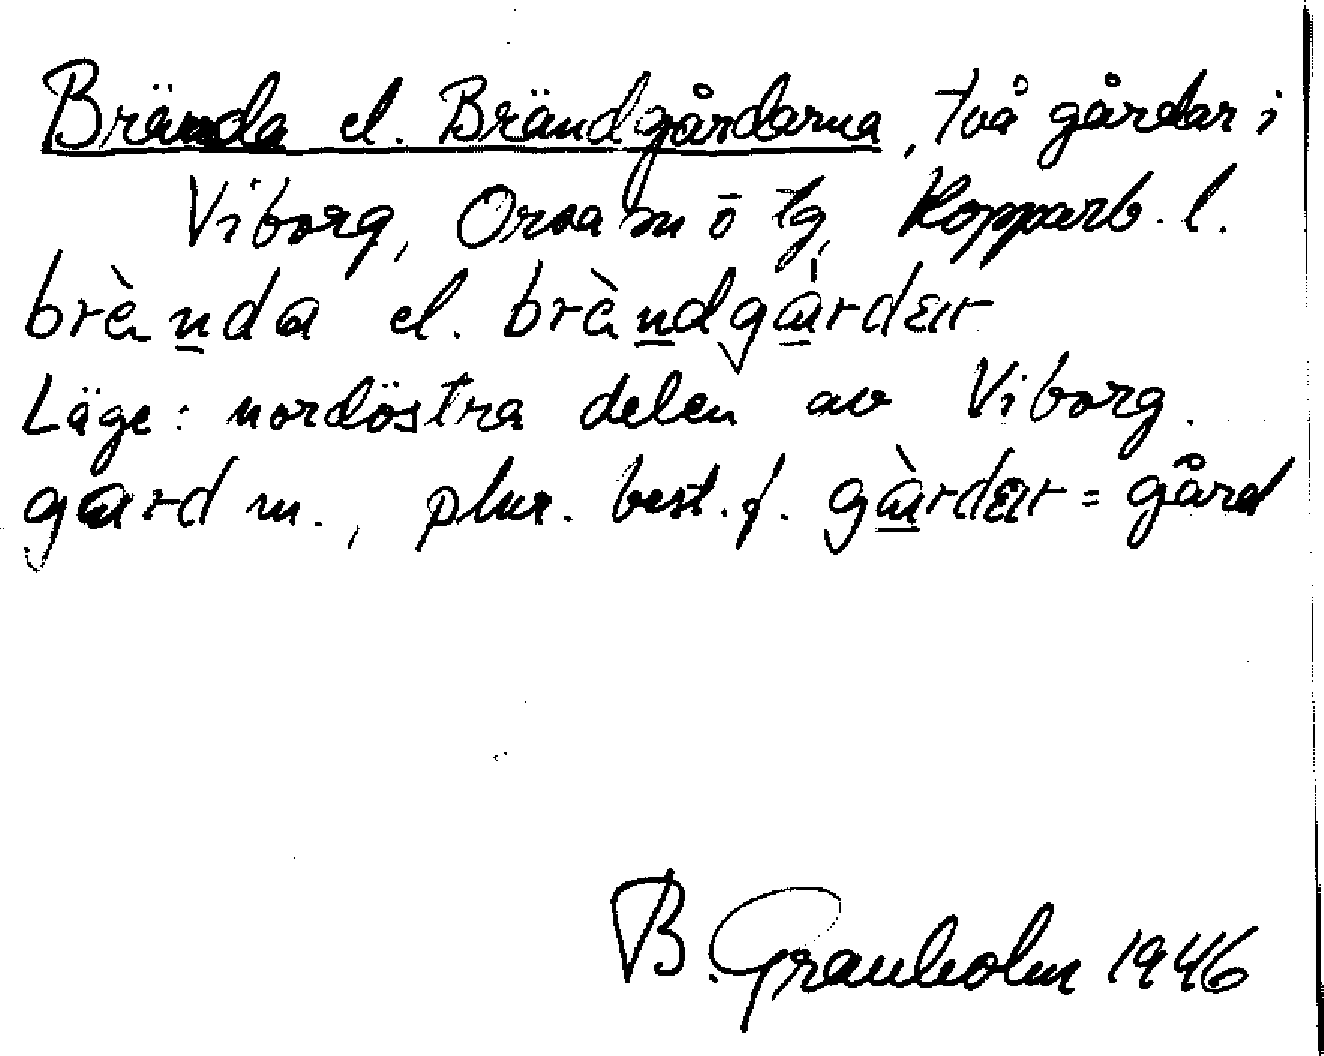 Brända el. Brändgårdarna, två gårdar i
Viborg, Orsa sn ö tg, Kopparb. l.
brènda el. brèndgárdær
Läge: nordöstra delen av Viborg.
gard m., plur. best. f. gàrdær = gård
B. Granholm 1946